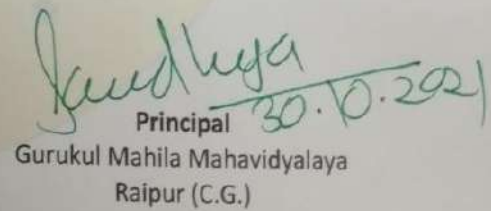 Sandhya
30.10.2021
Principal
Gurukul Mahila Mahavidyalaya
Raipur (C.G.)